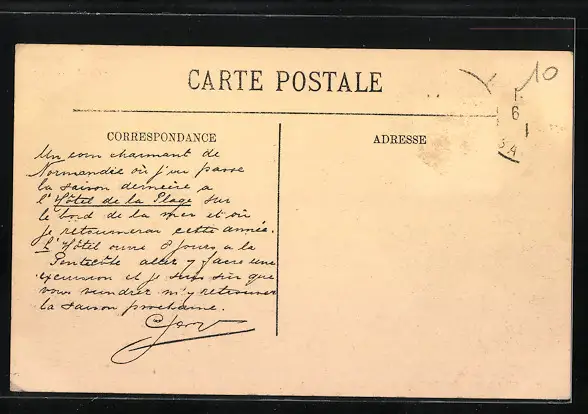 CARTE POSTALE
10
1
6
1
CORRESPONDANCE
ADRESSE
Un coin charmant de
Normandie où j'ai passé
la saison dernière a
l'Hôtel de la Plage sur
le bord de la mer et où
je retournerai cette année.
L'Hôtel ouvre 8 jours a la
Pentecôte allez y faire une
excursion et je suis sûr que
vous viendrez m'y retrouver
la saison prochaine.